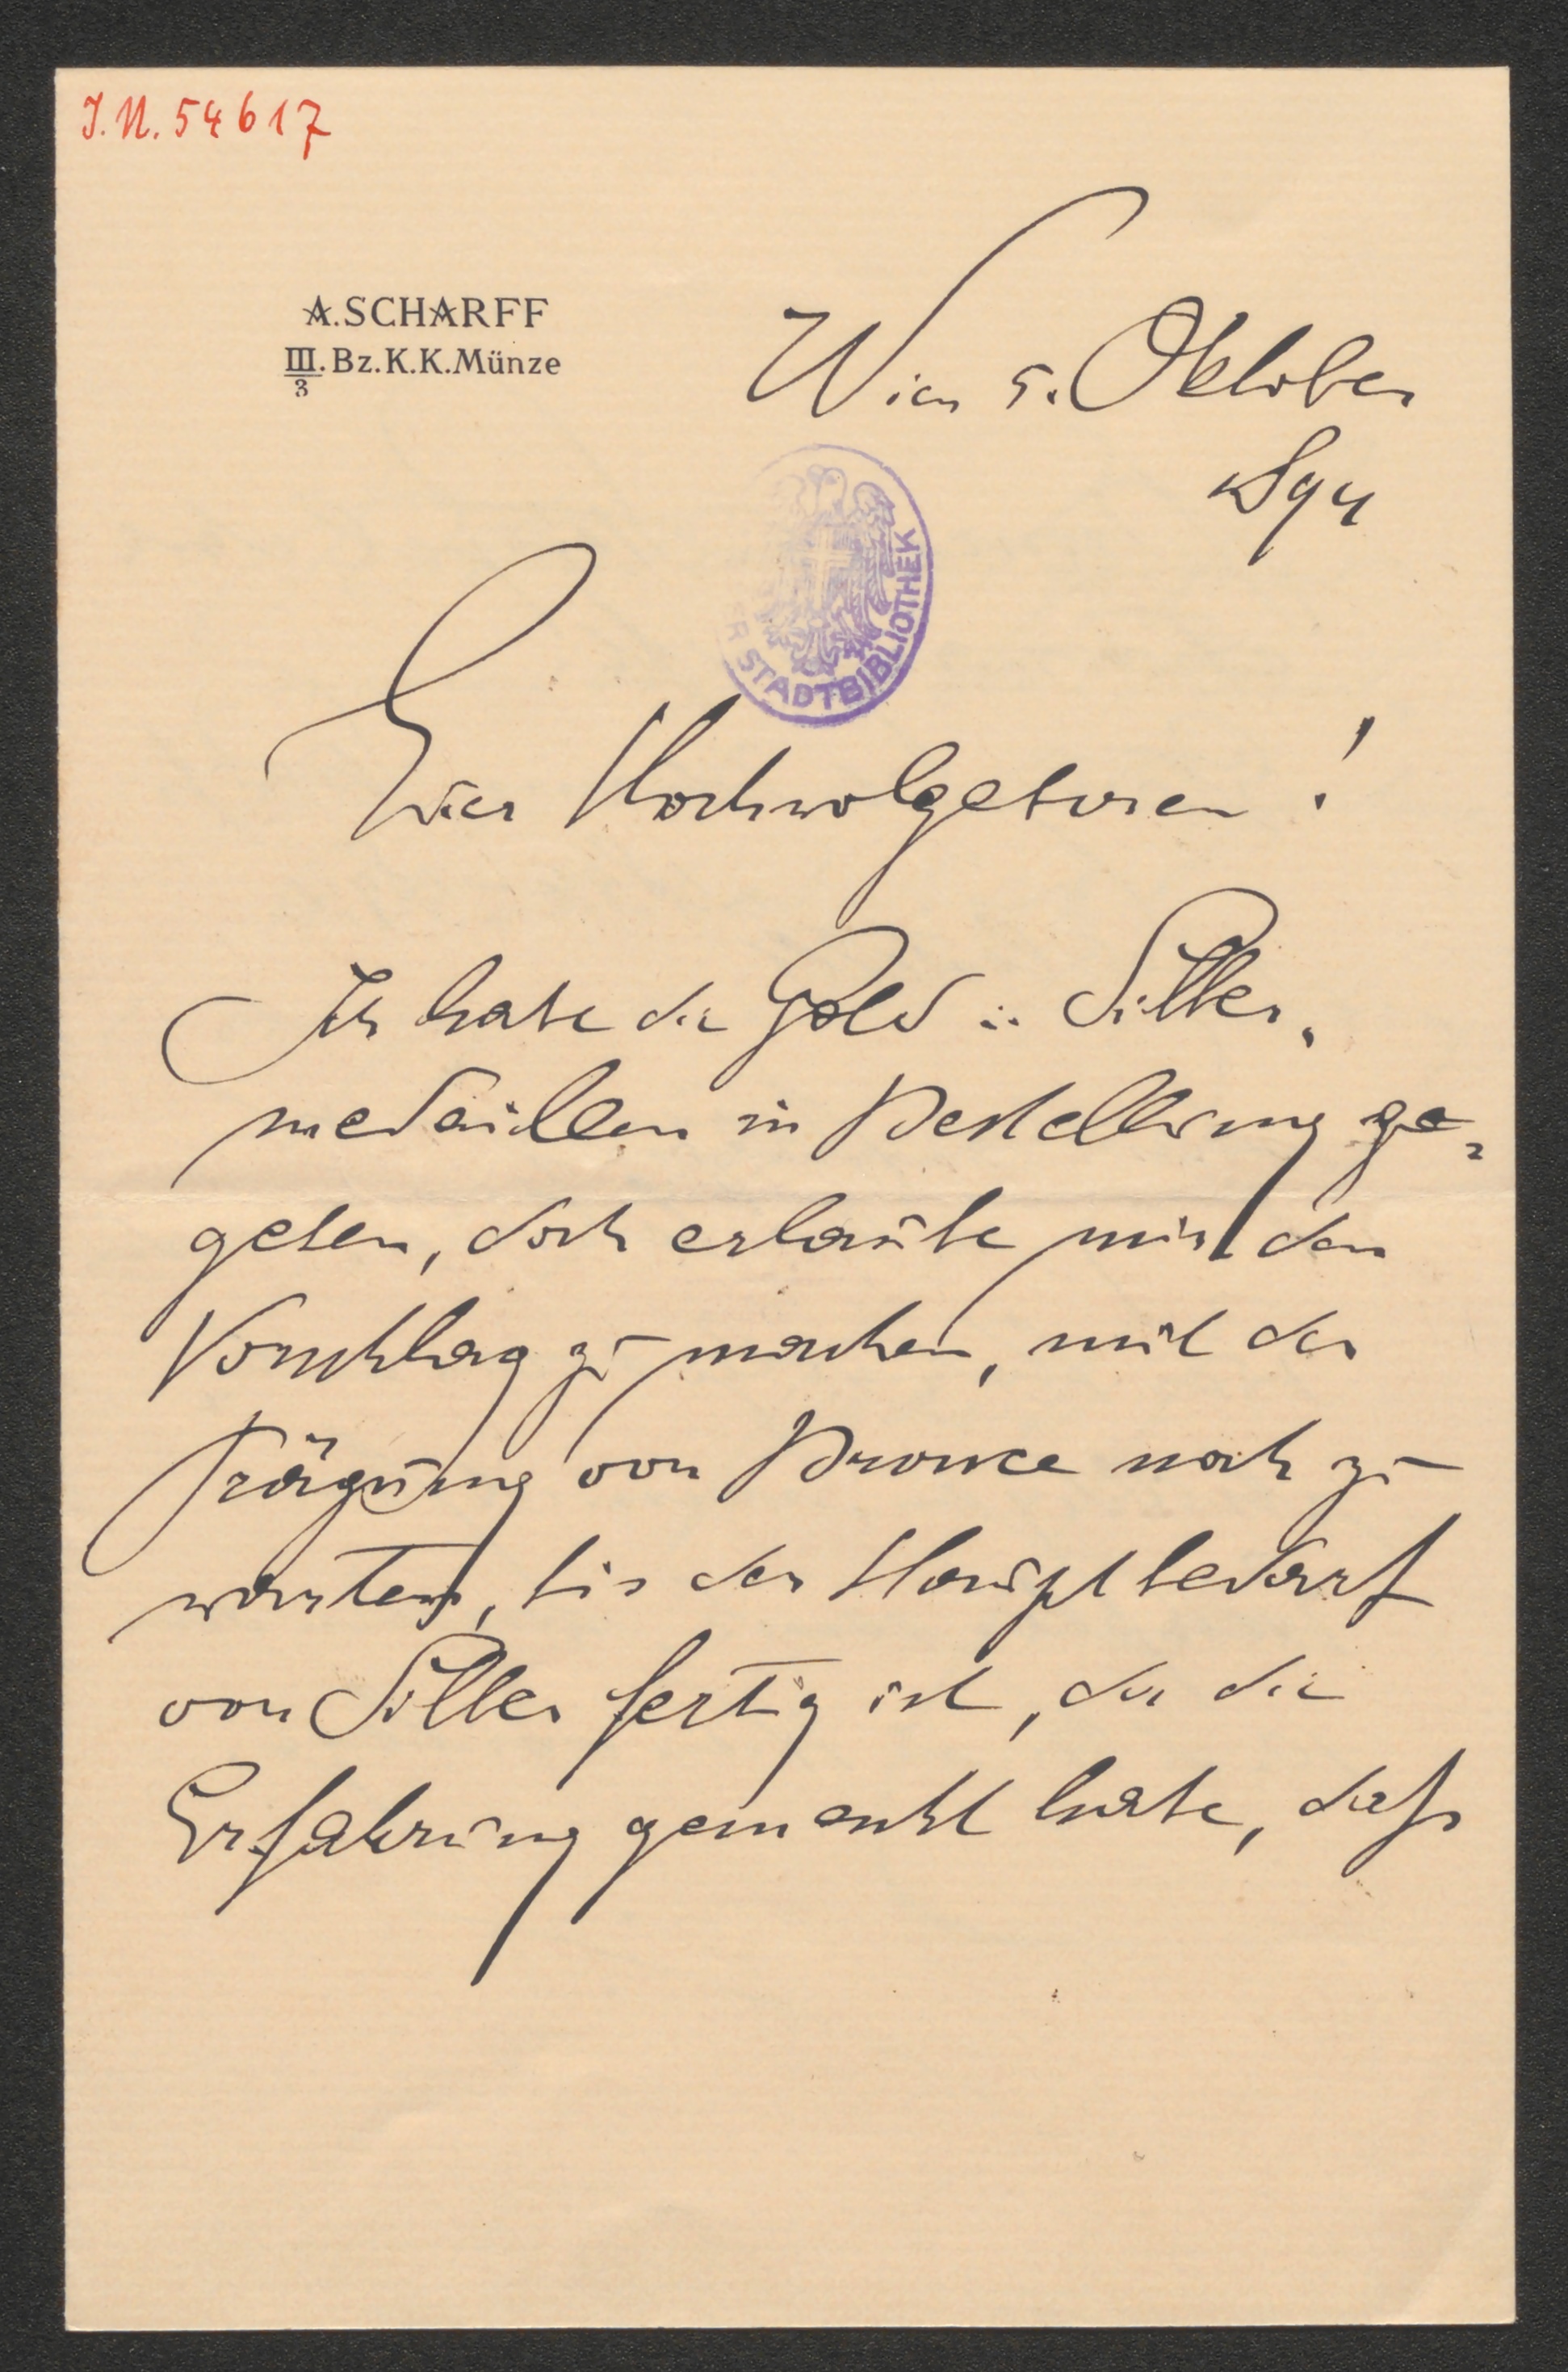 J.N. 54617
A. SCHARFF
III. Bz. K. K. Münze
3
Wien 5. Oktober
894
R STADTBIBLIOTHEK
Euer Hochwolgeboren!
Ich habe die Gold u. Silber-
medaillen in Bestellung ge-
geben, doch erlaube mir den
Vorschlag zu machen, mit der
Prägung von Bronce noch zu
warten, bis der Hauptbedarf
von Silber fertig ist, da die
Erfahrung gemacht habe, dass